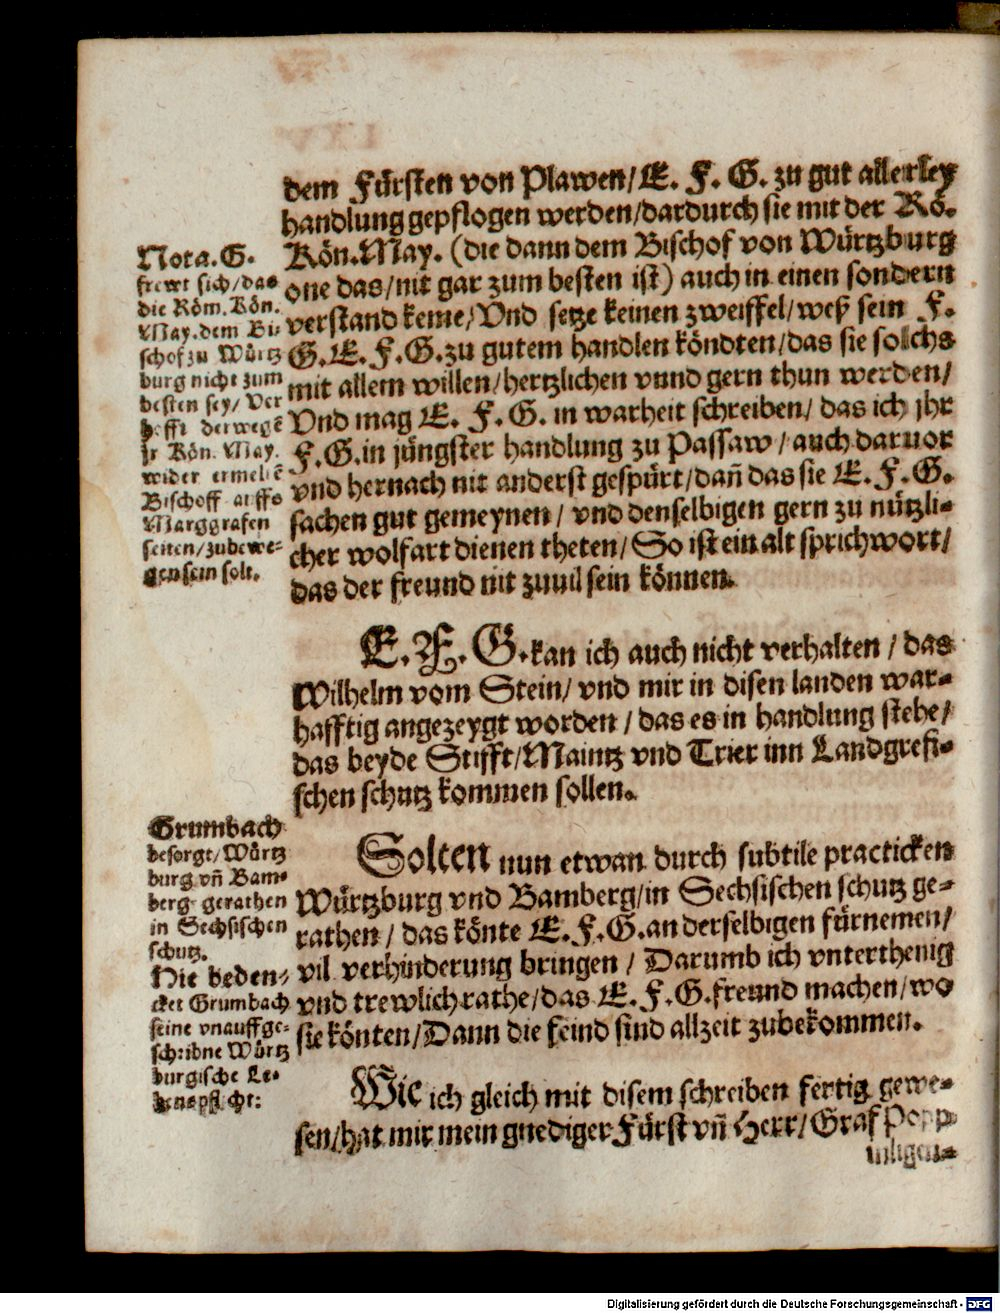 dem Fürsten von Plawen/E. F. G. zu gut allerley
handlung gepflogen werden/dardurch sie mit der Rö.
Kön.May. (die dann dem Bischof von Würtzburg
one das/nit gar zum besten ist) auch in einen sondern
verstand keme/Vnd setze keinen zweiffel/weß sein F.
G.E.F.G.zu gutem handlen köndten/das sie solchs
mit allem willen/hertzlichen vnnd gern thun werden/
Vnd mag E. F. G. in warheit schreiben/ das ich jhr
F.G.in jüngster handlung zu Passaw/auch daruor
vnd hernach nit anderst gespürt/dañ das sie E.F.G.
sachen gut gemeynen/ vnd denselbigen gern zu nützli-
cher wolfart dienen theten/ So ist ein alt sprichwort/
das der freund nit zuuil sein können.
Nota.G.
frewt sich/das
die Röm.Kön.
May.dem Bi-
schof zu Würtz
burg nicht zum
besten sey/ Ver
hofft derwegẽ
jr Kön. May.
wider ermeltẽ
Bischoff auffs
Marggrafen
seiten/zubewe-
gen sein solt.
E. F. G.kan ich auch nicht verhalten / das
Wilhelm vom Stein/ vnd mir in disen landen war-
hafftig angezeygt worden / das es in handlung stehe/
das beyde Stifft/Maintz vnd Trier inn Landgrefi-
schen schutz kommen sollen.
Solten nun etwan durch subtile practicken
Würtzburg vnd Bamberg/in Sechsischen schutz ge-
rathen / das könte E.F.G.an derselbigen fürnemen/
vil verhinderung bringen / Darumb ich vnterthenig
vnd trewlich rathe/das E.F.G.freund machen/wo
sie könten/Dann die feind sind allzeit zubekommen.
Grumbach
besorgt/Würtz
burg vñ Bam-
berg gerathen
in Sechsischen
schutz.
Hie beden-
cket Grumbach
seine vnauffge-
schribne Würtz
burgische Le-
henspflicht:
Wie ich gleich mit disem schreiben fertig gewe-
sen/hat mir mein gnediger Fürst vñ Herr/Graf Popp
Digitalisierung gefördert durch die Deutsche Forschungsgemeinschaft - DFG